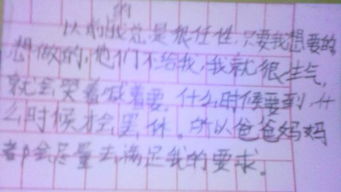 的
以前我总是很任性,只要我想要的
想做的,他们不给我,我就很生气,
就会哭着喊着要,什么时候要到,什
么时候才会罢休。所以爸爸妈妈
都会尽量去满足我的要求。